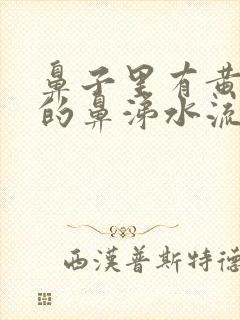 鼻子里有黄
的鼻涕水流
西漢普斯特德